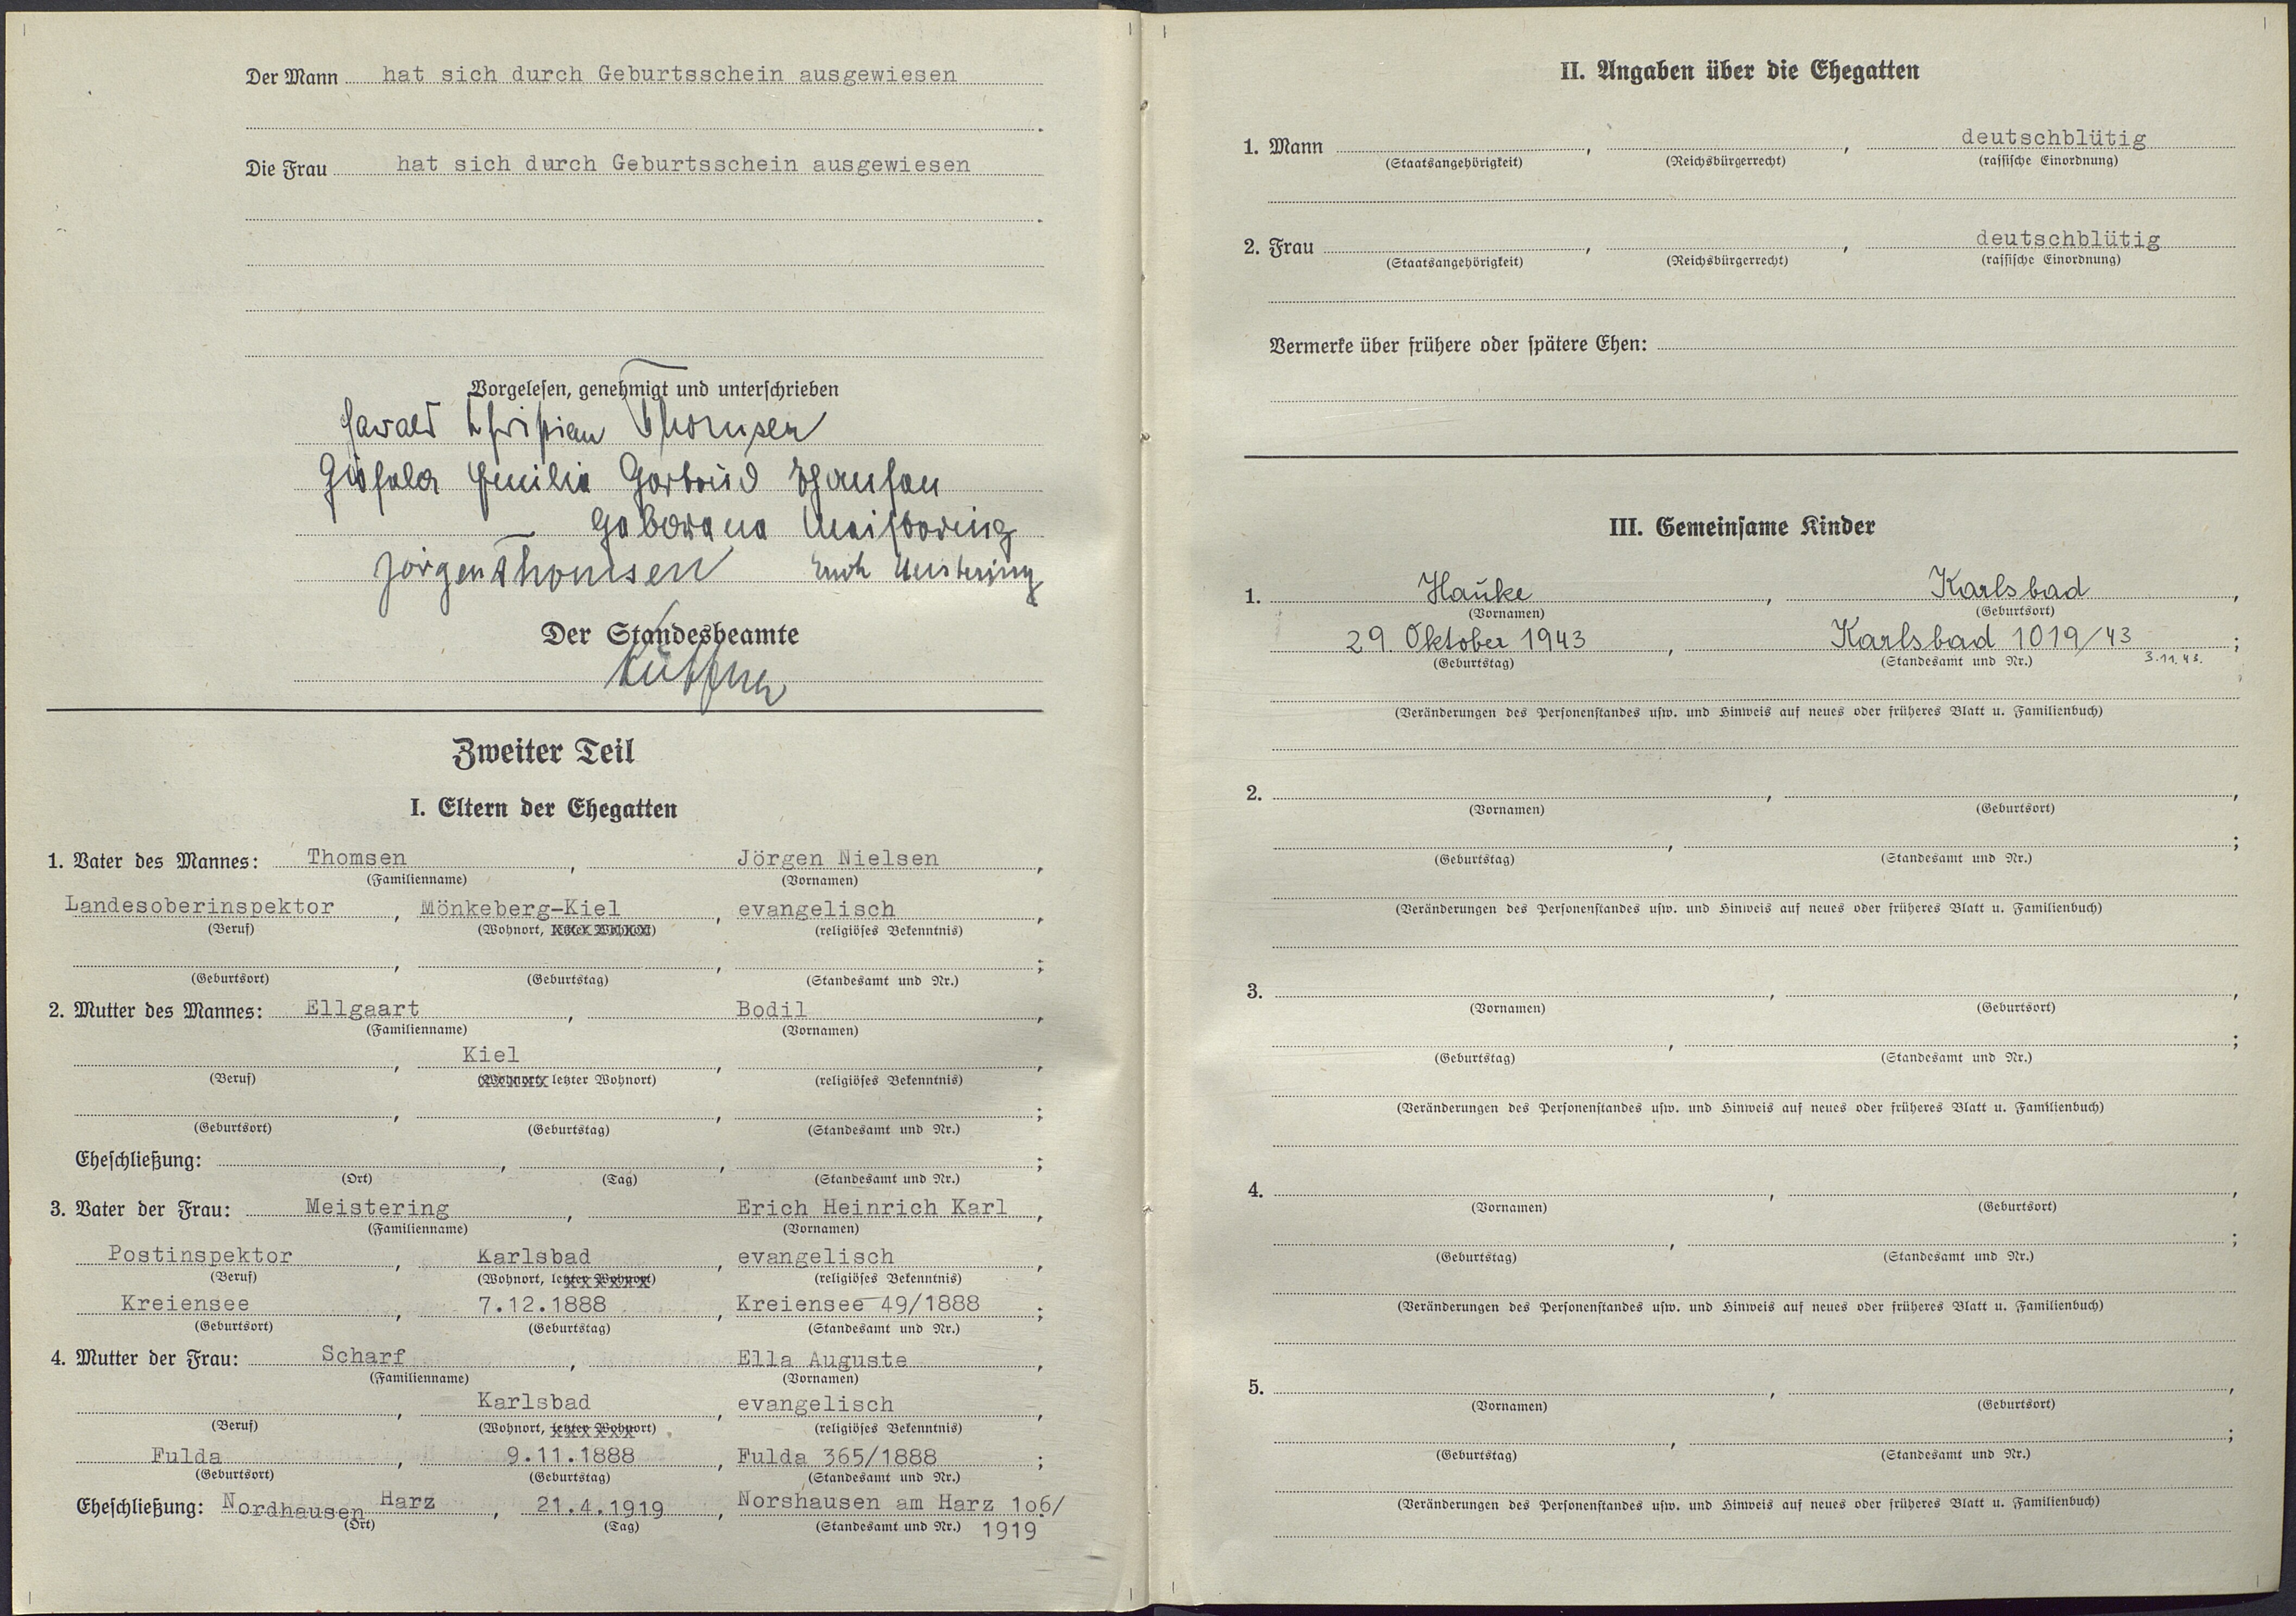 Der Mann hat sich durch Geburtsschein ausgewiesen
Die Frau hat sich durch Geburtsschein ausgewiesen
Vorgelesen, genehmigt und unterschrieben
Harald Christian Thomsen
Gisela Emilie Gertrud Thomsen
geborene Meistering
Jörgen Thomsen Erich Meistering
Der Standesbeamte
Zweiter Teil
I. Eltern der Ehegatten
1. Vater des Mannes: Thomsen, Jörgen Nielsen,
(Familienname) (Vornamen)
Landesoberinspektor, Mönkeberg-Kiel, evangelisch,
(Beruf) (Wohnort, letzter Wohnort) (religiöses Bekenntnis)
, , ;
(Geburtsort) (Geburtstag) (Standesamt und Nr.)
2. Mutter des Mannes: Ellgaart, Bodil,
(Familienname) (Vornamen)
, Kiel, ,
(Beruf) (Wohnort, letzter Wohnort) (religiöses Bekenntnis)
, , ;
(Geburtsort) (Geburtstag) (Standesamt und Nr.)
Eheschließung: , , ;
(Ort) (Tag) (Standesamt und Nr.)
3. Vater der Frau: Meistering, Erich Heinrich Karl,
(Familienname) (Vornamen)
Postinspektor, Karlsbad, evangelisch,
(Beruf) (Wohnort, letzter Wohnort) (religiöses Bekenntnis)
Kreiensee, 7.12.1888, Kreiensee 49/1888;
(Geburtsort) (Geburtstag) (Standesamt und Nr.)
4. Mutter der Frau: Scharf, Ella Auguste,
(Familienname) (Vornamen)
, Karlsbad, evangelisch,
(Beruf) (Wohnort, letzter Wohnort) (religiöses Bekenntnis)
Fulda, 9.11.1888, Fulda 365/1888;
(Geburtsort) (Geburtstag) (Standesamt und Nr.)
Eheschließung: Nordhausen Harz, 21.4.1919, Norshausen am Harz 1o6/
(Ort) (Tag) (Standesamt und Nr.) 1919.
II. Angaben über die Ehegatten
1. Mann , , deutschblütig
(Staatsangehörigkeit) (Reichsbürgerrecht) (rassische Einordnung)
2. Frau , , deutschblütig
(Staatsangehörigkeit) (Reichsbürgerrecht) (rassische Einordnung)
Vermerke über frühere oder spätere Ehen:
III. Gemeinsame Kinder
1. Hauke, Karlsbad,
(Vornamen) (Geburtsort)
29. Oktober 1943, Karlsbad 1019/43;
(Geburtstag) (Standesamt und Nr.) 3.11.43.
(Veränderungen des Personenstandes usw. und Hinweis auf neues oder früheres Blatt u. Familienbuch)
2. , ,
(Vornamen) (Geburtsort)
, ;
(Geburtstag) (Standesamt und Nr.)
(Veränderungen des Personenstandes usw. und Hinweis auf neues oder früheres Blatt u. Familienbuch)
3. , ,
(Vornamen) (Geburtsort)
, ;
(Geburtstag) (Standesamt und Nr.)
(Veränderungen des Personenstandes usw. und Hinweis auf neues oder früheres Blatt u. Familienbuch)
4. , ,
(Vornamen) (Geburtsort)
, ;
(Geburtstag) (Standesamt und Nr.)
(Veränderungen des Personenstandes usw. und Hinweis auf neues oder früheres Blatt u. Familienbuch)
5. , ,
(Vornamen) (Geburtsort)
, ;
(Geburtstag) (Standesamt und Nr.)
(Veränderungen des Personenstandes usw. und Hinweis auf neues oder früheres Blatt u. Familienbuch)